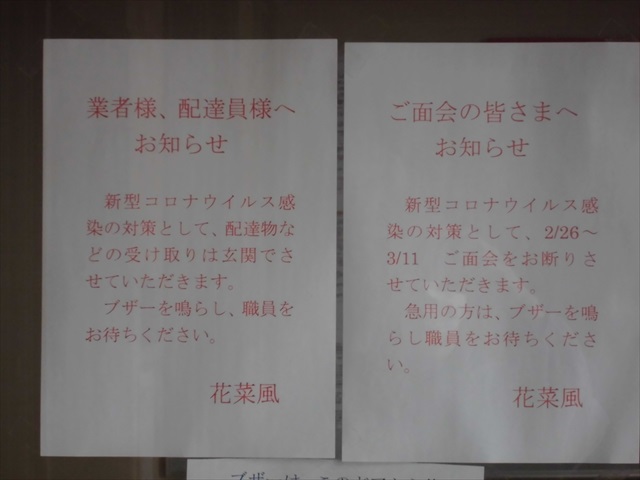 業者様、配達員様へ
お知らせ
新型コロナウイルス感
染の対策として、配達物な
どの受け取りは玄関でさ
せていただきます。
ブザーを鳴らし、職員を
お待ちください。
花菜風
ご面会の皆さまへ
お知らせ
新型コロナウイルス感
染の対策として、2/26～
3/11　ご面会をお断りさ
せていただきます。
急用の方は、ブザーを鳴
らし職員をお待ちくださ
い。
花菜風
ブザーは